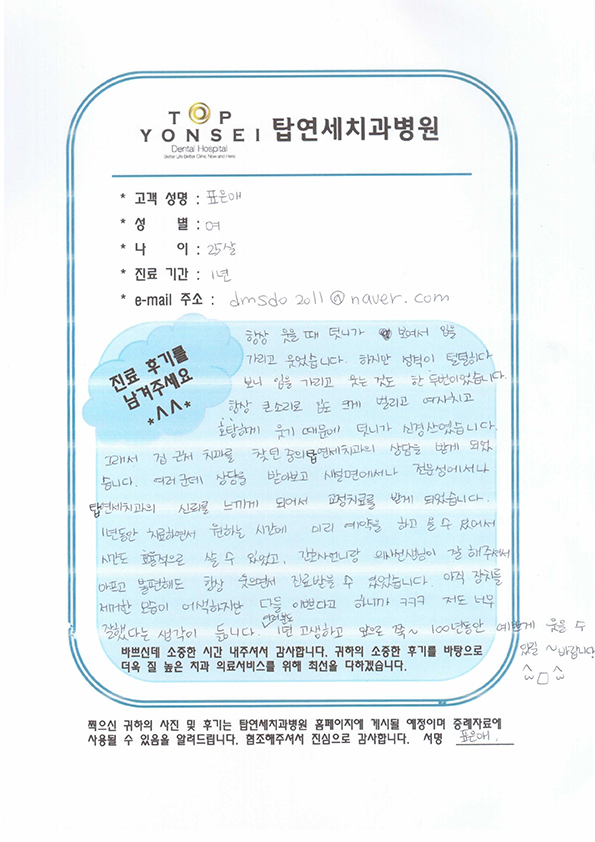 TOP
YONSEI 탑연세치과병원
Dental Hospital
Better Life Better Clinic Now and Here
* 고객 성명 : 표은애
* 성 별 : 여
* 나 이 : 25살
* 진료 기간 : 1년
* e-mail 주소 : dmsdo2011@naver.com
진료 후기를
남겨주세요
*^^*
항상 웃을 때 덧니가 보여서 입을
가리고 웃었습니다. 하지만 성격이 털털하다
보니 입을 가리고 웃는 것도 한 두번이었습니다.
항상 큰소리로 입도 크게 벌리고 여자치고
호탕하게 웃기 때문에 덧니가 신경쓰였습니다.
그래서 집 근처 치과를 찾던 중의 탑연세치과의 상담을 받게 되었
습니다. 여러군데 상담을 받아보고 시설면에서나 전문성에서나
탑연세치과의 신뢰를 느끼게 되어서 교정치료를 받게 되었습니다.
1년동안 치료하면서 원하는 시간에 미리 예약을 하고 올 수 있어서
시간도 효율적으로 쓸 수 있었고, 간호사언니랑 의사선생님이 잘 해주셔서
아프고 불편해도 항상 웃으면서 진료받을 수 있었습니다. 아직 장치를
제거한 모습이 어색하지만 다들 이쁘다고 하니까 ㅋㅋㅋ 저도 너무
잘했다는 생각이 듭니다. 여러분도 1년 고생하고 앞으로 쭉~ 100년동안 예쁘게 웃을 수
있길 ~ 바랍니다
^ㅁ^
바쁘신데 소중한 시간 내주셔서 감사합니다. 귀하의 소중한 후기를 바탕으로
더욱 질 높은 치과 의료서비스를 위해 최선을 다하겠습니다.
찍으신 귀하의 사진 및 후기는 탑연세치과병원 홈페이지에 게시될 예정이며 증례자료에
사용될 수 있음을 알려드립니다. 협조해주셔서 진심으로 감사합니다. 서명 표은애.